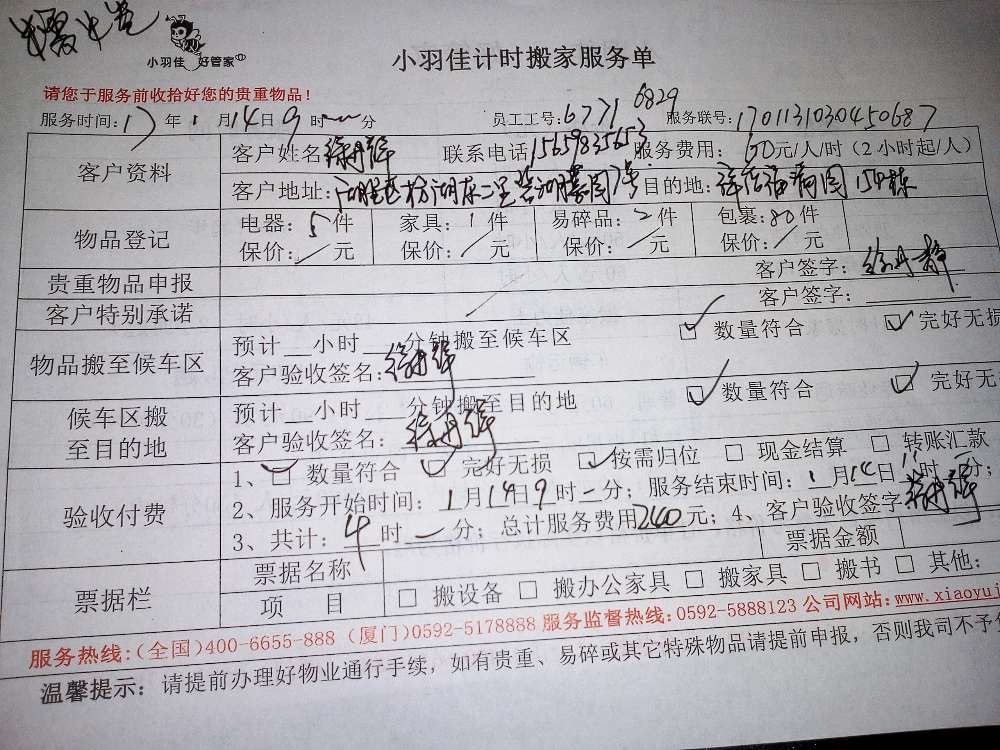 小羽佳 好管家
小羽佳计时搬家服务单
请您于服务前收拾好您的贵重物品!
服务时间:17年1月14日9时一分 员工工号:6771 6829 服务联号:1701131030450687
客户资料 客户姓名 联系电话15659835653 服务费用:60元/人/时(2小时起/人)
客户地址: 目的地:
物品登记 电器:5件 家具:1件 易碎品:2件 包裹:80件
保价:/元 保价:/元 保价:/元 保价:/元
贵重物品申报 客户签字:
客户特别承诺 客户签字:
物品搬至候车区 预计__小时__分钟搬至候车区 数量符合 完好无损
客户验收签名:
候车区搬至目的地 预计__小时__分钟搬至目的地 数量符合 完好无损
客户验收签名:
验收付费 1、数量符合 完好无损 按需归位 现金结算 转账汇款
2、服务开始时间:1月14日9时一分;服务结束时间:1月14日11时一分;
3、共计:4时一分;总计服务费用240元;4、客户验收签字
票据栏 票据名称 票据金额
项目 搬设备 搬办公家具 搬家具 搬书 其他:
服务热线:(全国)400-6655-888 (厦门)0592-5178888 服务监督热线:0592-5888123 公司网站:www.xiaoyuj
温馨提示:请提前办理好物业通行手续,如有贵重、易碎或其它特殊物品请提前申报,否则我司不予